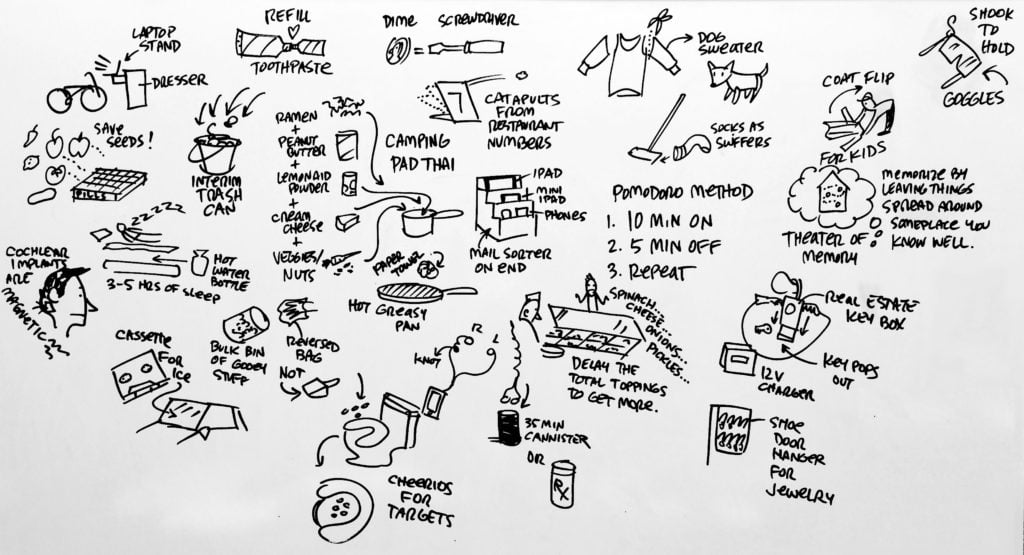 LAPTOP
STAND
DRESSER
REFILL
TOOTHPASTE
DIME
SCREWDRIVER
DOG
SWEATER
SHOOK
TO
HOLD
GOGGLES
SAVE
SEEDS!
PILLS
INTERIM
TRASH
CAN
RAMEN
+
PEANUT
BUTTER
+
LEMONAID
POWDER
+
CREAM
CHEESE
+
VEGGIES/
NUTS
CAMPING
PAD THAI
CATAPULTS
FROM
RESTAURANT
NUMBERS
SOCKS AS
SWIFFERS
COAT FLIP
FOR KIDS
IPAD
MINI
IPAD
PHONES
MAIL SORTER
ON END
POMODORO METHOD
1. 10 MIN ON
2. 5 MIN OFF
3. REPEAT
THEATER OF
MEMORY
MEMORIZE BY
LEAVING THINGS
SPREAD AROUND
SOMEPLACE YOU
KNOW WELL.
COCHLEAR
IMPLANTS
ARE
MAGNETIC
ZZZZZ
HOT
WATER
BOTTLE
3-5 HRS OF SLEEP
PAPER
TOWEL
HOT GREASY
PAN
CASSETTE
FOR
ICE
BULK BIN
OF GOOEY
STUFF
REVERSED
BAG
NOT
KNOT
R
L
SPINACH...
CHEESE...
ONIONS...
PICKLES...
DELAY THE
TOTAL TOPPINGS
TO GET MORE.
REAL ESTATE
KEY BOX
KEY POPS
OUT
12V
CHARGER
35 MIN
CANNISTER
OR
RX
CHEERIOS
FOR
TARGETS
SHOE
DOOR
HANGER
FOR
JEWELRY